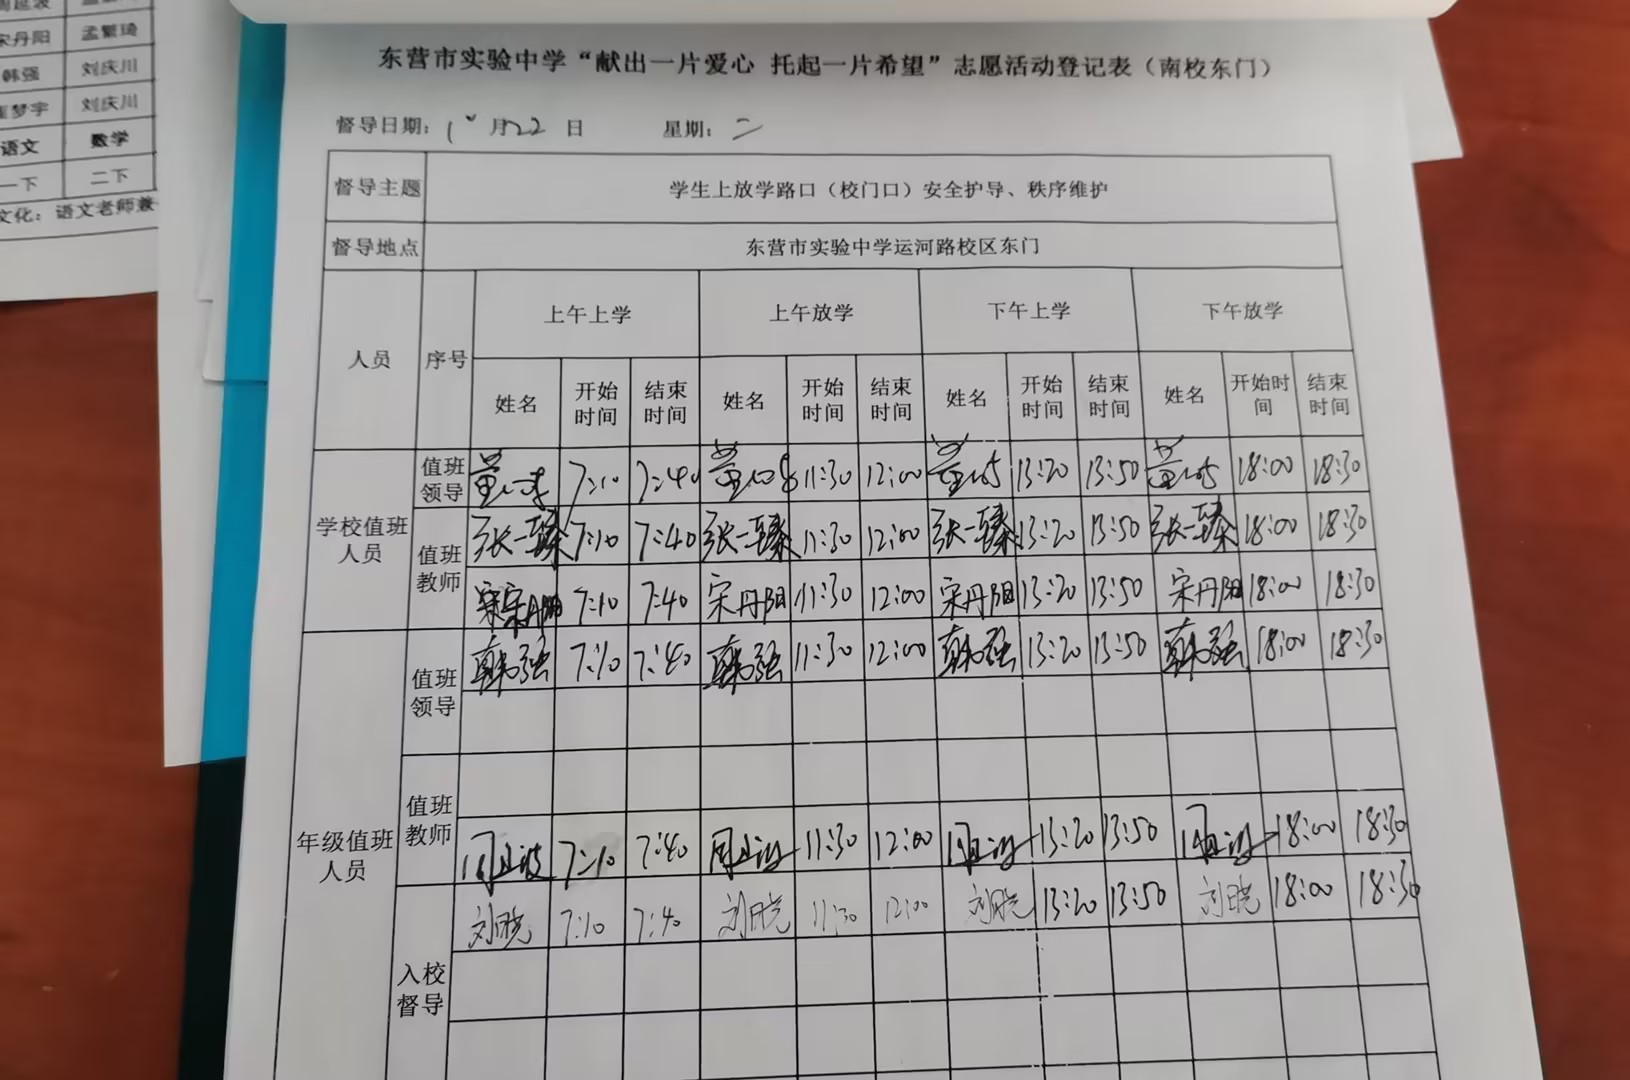 宋丹阳 孟繁琦
韩强 刘庆川
刘庆川
语文 数学
一下 二下
文化：语文老师兼
东营市实验中学“献出一片爱心 托起一片希望”志愿活动登记表（南校东门）
督导日期：10月22日 星期：二
督导主题 学生上放学路口（校门口）安全护导、秩序维护
督导地点 东营市实验中学运河路校区东门
人员 序号 上午上学 上午放学 下午上学 下午放学
姓名 开始时间 结束时间 姓名 开始时间 结束时间 姓名 开始时间 结束时间 姓名 开始时间 结束时间
学校值班人员 值班领导 7:10 7:40 11:30 12:00 13:20 13:50 18:00 18:30
值班教师 张一臻 7:10 7:40 张一臻 11:30 12:00 张一臻 13:20 13:50 张一臻 18:00 18:30
宋丹阳 7:10 7:40 宋丹阳 11:30 12:00 宋丹阳 13:20 13:50 宋丹阳 18:00 18:30
年级值班人员 值班领导 韩强 7:10 7:40 韩强 11:30 12:00 韩强 13:20 13:50 韩强 18:00 18:30
值班教师 7:10 7:40 11:30 12:00 13:20 13:50 18:00 18:30
入校督导 刘晓 7:10 7:40 刘晓 11:30 12:00 刘晓 13:20 13:50 刘晓 18:00 18:30